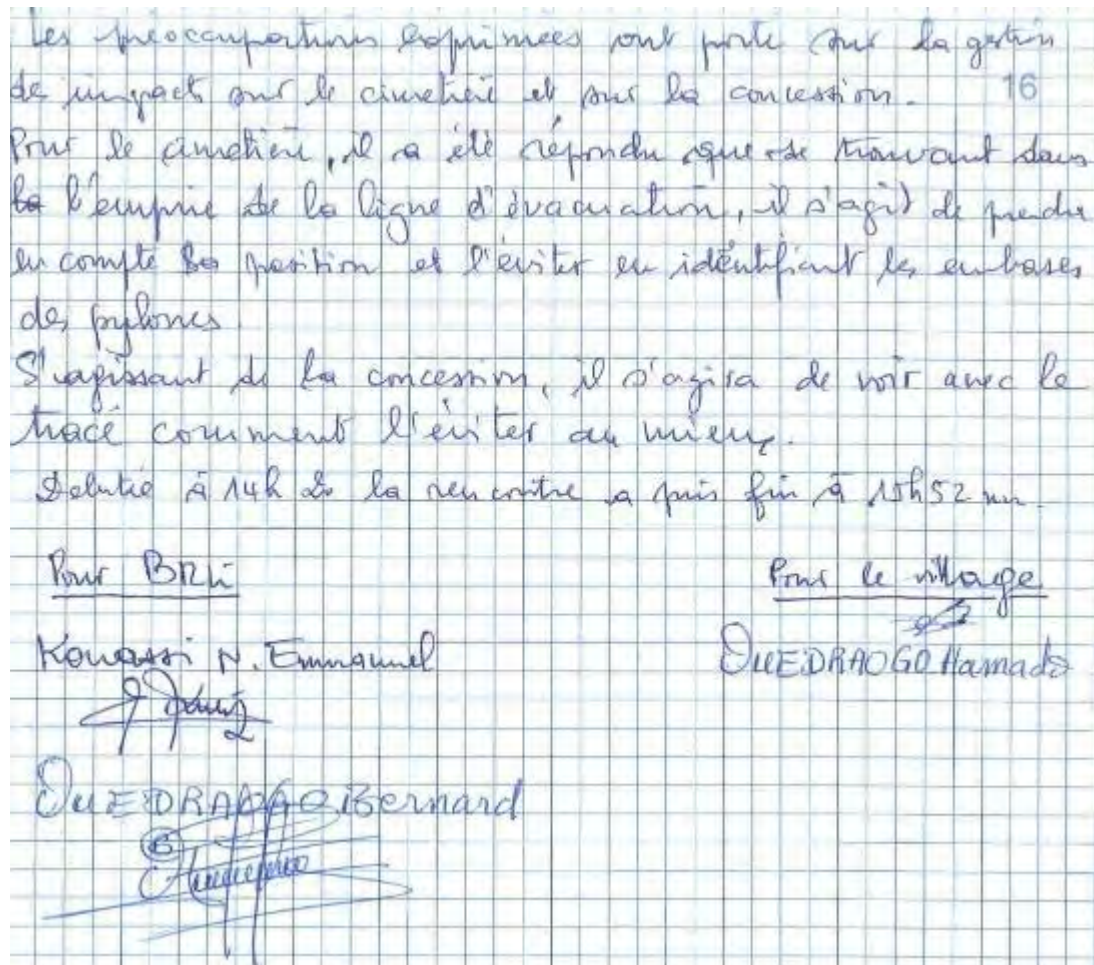 Les préoccupations exprimées ont porté sur la gestion
de impacts sur le cimetière et sur la concession. 16
Pour le cimetière, il a été répondu que se trouvant dans
la l'emprise de la ligne d'évacuation, il s'agit de prendre
en compte sa position et l'éviter en identifiant les embases
des pylones
S'agissant de la concession, il s'agira de voir avec le
tracé comment l'éviter au mieux.
Débutée à 14h la rencontre a pris fin à 15h52 mn.
Pour BRLi
Pour le village
Kouassi N. Emmanuel
OUEDRAOGO Hamado
OUEDRAOGO Bernard